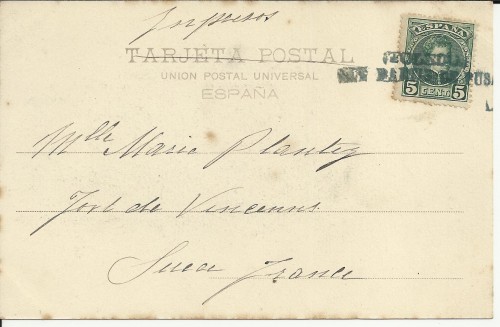 Impresos
TARJETA POSTAL
UNION POSTAL UNIVERSAL
ESPAÑA
ESPAÑA
5 CENT. 5
Mlle Maria Plantey
Fort de Vincennes
France